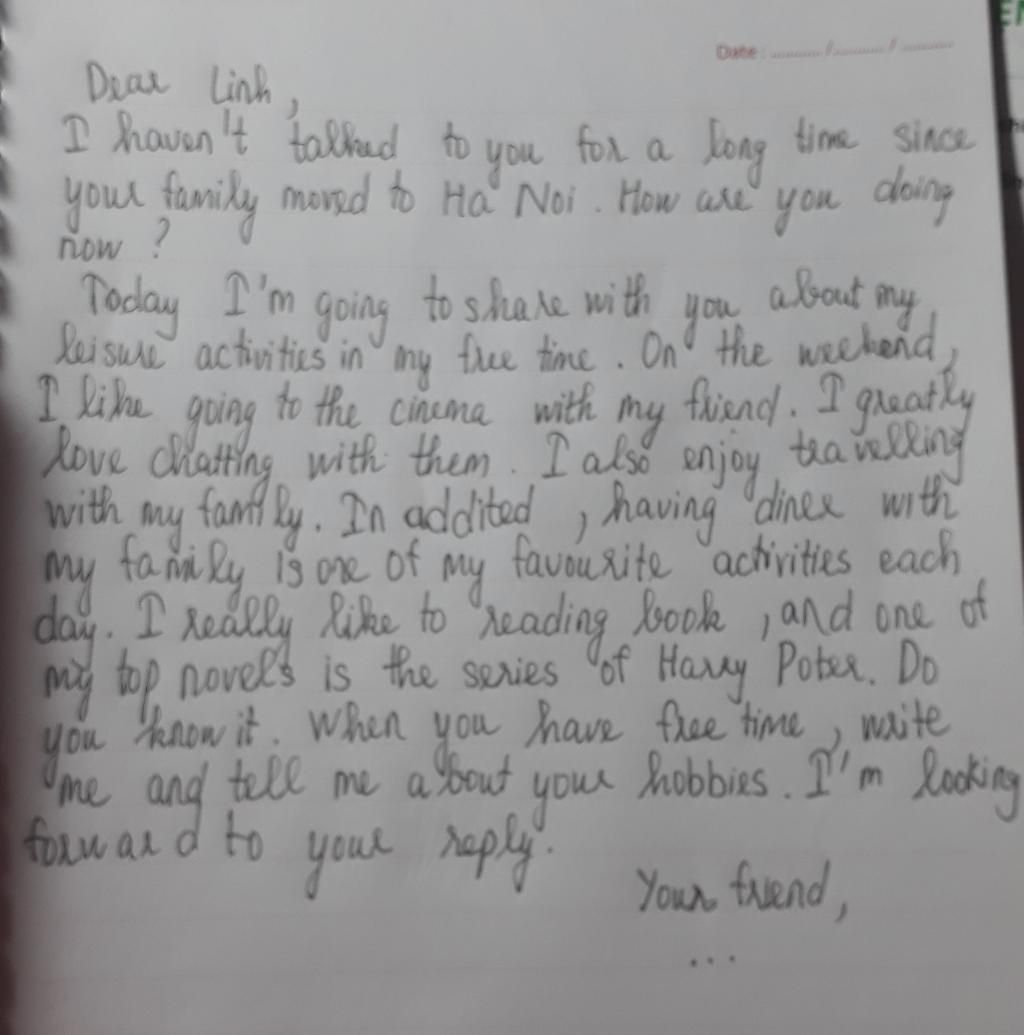 Date : ........../........../..........
Dear Linh,
I haven't talked to you for a long time since
your family moved to Ha Noi. How are you doing
now ?
Today I'm going to share with you about my
leisure activities in my free time. On the weekend,
I like going to the cinema with my friend. I greatly
love chatting with them. I also enjoy travelling
with my family. In addited, having diner with
my family is one of my favourite activities each
day. I really like to reading book, and one of
my top novels is the series of Harry Poter. Do
you know it. When you have free time, write
me and tell me about your hobbies. I'm looking
forward to your reply.
Your friend,
...